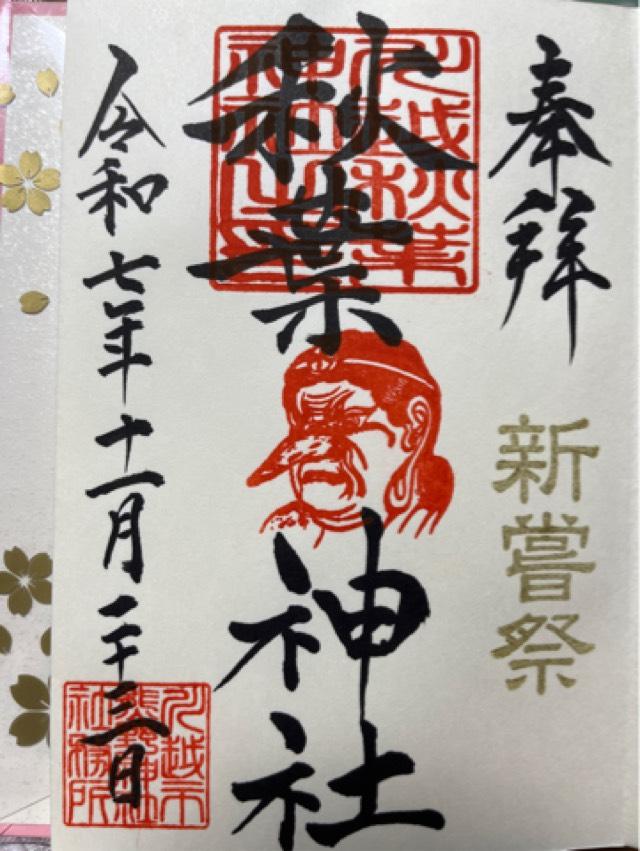 奉拝
新嘗祭
秋葉神社
川越秋葉
神社之印
令和七年十一月二十三日
川越市
熊野神社
社務所